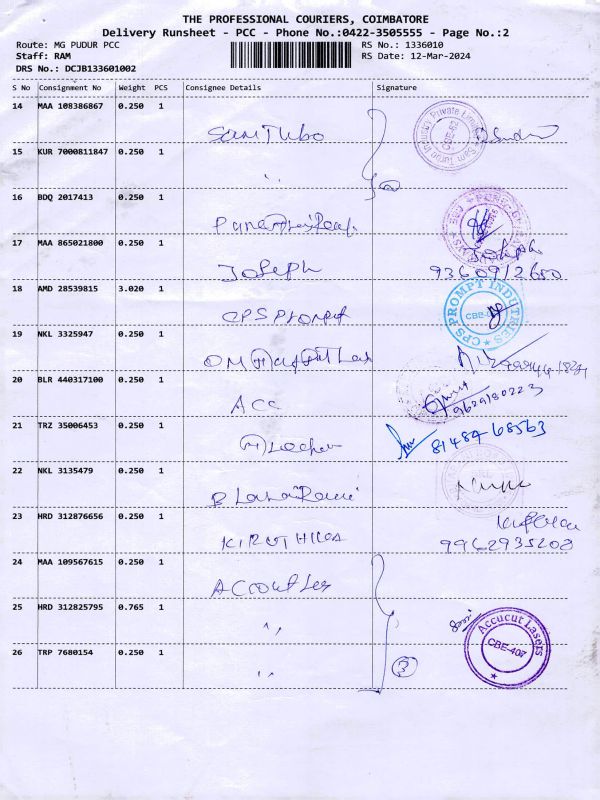 THE PROFESSIONAL COURIERS, COIMBATORE
Delivery Runsheet - PCC - Phone No.:0422-3505555 - Page No.:2
Route: MG PUDUR PCC
RS No.: 1336010
Staff: RAM
RS Date: 12-Mar-2024
DRS No.: DCJB133601002
S No Consignment No Weight PCS Consignee Details Signature
14 MAA 108386867 0.250 1
Sam Turbo
Sam Turbo Industry Private Limited CBE-62
15 KUR 7000811847 0.250 1
,,
2
16 BDQ 2017413 0.250 1
17 MAA 865021800 0.250 1
Joseph
Joseph
9360912600
18 AMD 28539815 3.020 1
CPS Prompt
CPS PROMPT INDUTRIES
19 NKL 3325947 0.250 1
20 BLR 440317100 0.250 1
ACC
9629180223
21 TRZ 35006453 0.250 1
81489-68563
22 NKL 3135479 0.250 1
23 HRD 312876656 0.250 1
9962935208
24 MAA 109567615 0.250 1
25 HRD 312825795 0.765 1
,,
Accucut Lasers CBE-407
26 TRP 7680154 0.250 1
,,
3